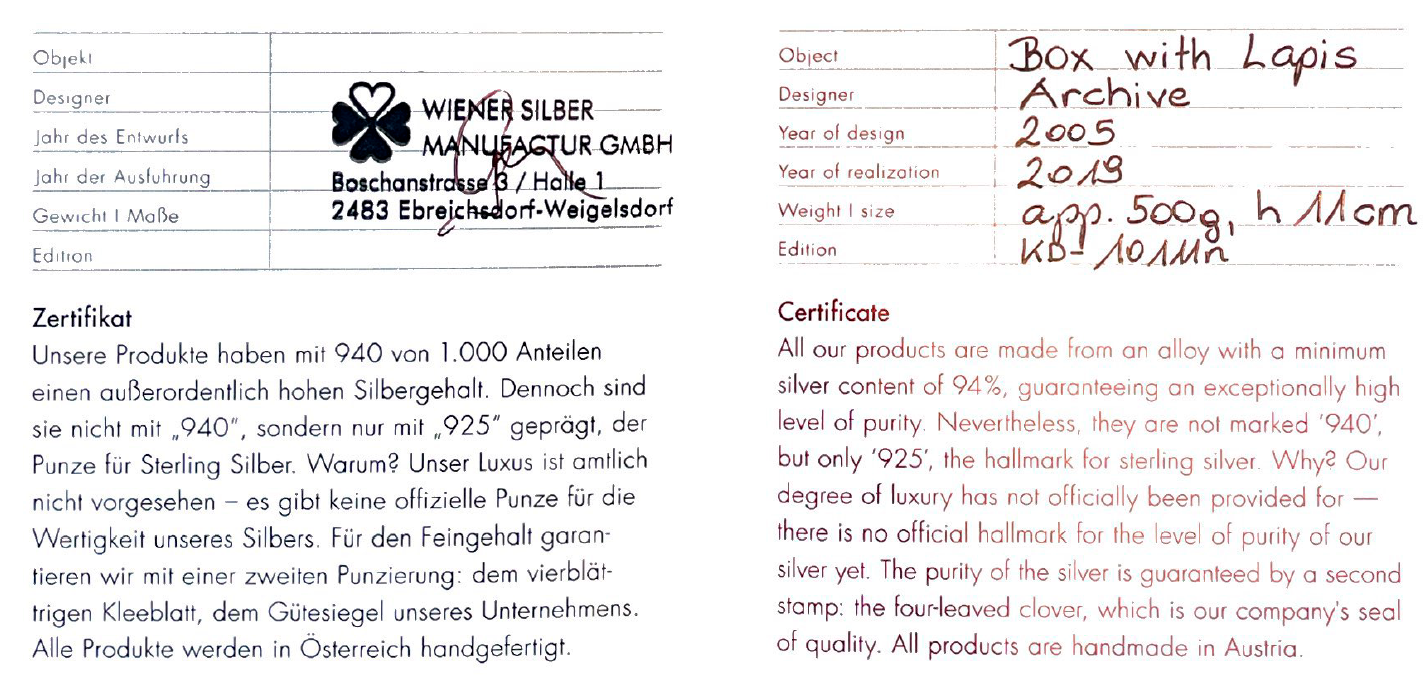 Objekt
Designer
Jahr des Entwurfs
Jahr der Ausfuhrung
Gewicht | Maße
Edition
WIENER SILBER
MANUFACTUR GMBH
Boschanstrasse 3 / Halle 1
2483 Ebreichsdorf-Weigelsdorf
Zertifikat
Unsere Produkte haben mit 940 von 1.000 Anteilen
einen außerordentlich hohen Silbergehalt. Dennoch sind
sie nicht mit „940“, sondern nur mit „925“ geprägt, der
Punze für Sterling Silber. Warum? Unser Luxus ist amtlich
nicht vorgesehen – es gibt keine offizielle Punze für die
Wertigkeit unseres Silbers. Für den Feingehalt garan-
tieren wir mit einer zweiten Punzierung: dem vierblät-
trigen Kleeblatt, dem Gütesiegel unseres Unternehmens.
Alle Produkte werden in Österreich handgefertigt.
Object Box with Lapis
Designer Archive
Year of design 2005
Year of realization 2019
Weight | size app. 500g, h 11cm
Edition KD-1011Mn
Certificate
All our products are made from an alloy with a minimum
silver content of 94%, guaranteeing an exceptionally high
level of purity. Nevertheless, they are not marked ‘940’,
but only ‘925’, the hallmark for sterling silver. Why? Our
degree of luxury has not officially been provided for —
there is no official hallmark for the level of purity of our
silver yet. The purity of the silver is guaranteed by a second
stamp: the four-leaved clover, which is our company's seal
of quality. All products are handmade in Austria.